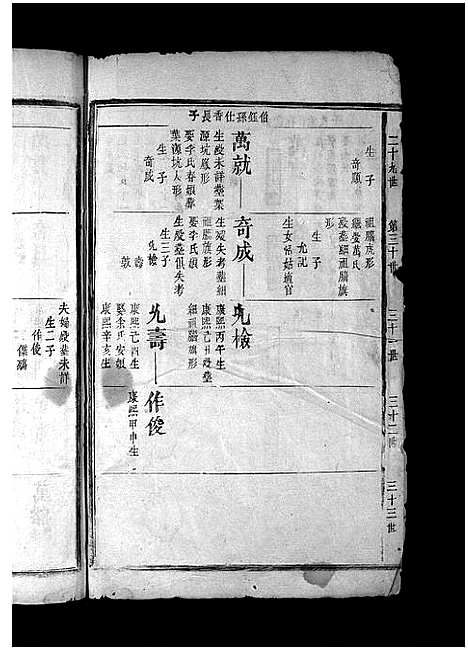 二十九世
第三十世
三十一世
三十二世
三十三世
伯鈺孫仕香長子
生子
奇順
萬就
生歿未詳塟葉
源坑鳳形
娶李氏春娘塟
葉源坑人形
生子
奇成
祖腦旗形
繼娶萬氏
歿塟細祖腦旗
形
生子
允記
生女
奇成
生歿失考塟細
祖腦旗形
娶李氏娘
生歿塟俱失考
生三子
允檢
壽
允檢
康熙丙午生
康熙己丑歿塟
細祖腦旗形
允壽
康熙己酉生
娶余氏安娘
康熙辛亥生
作俊
康熙甲申生
夫婦歿塟未詳
生二子
作俊
傑